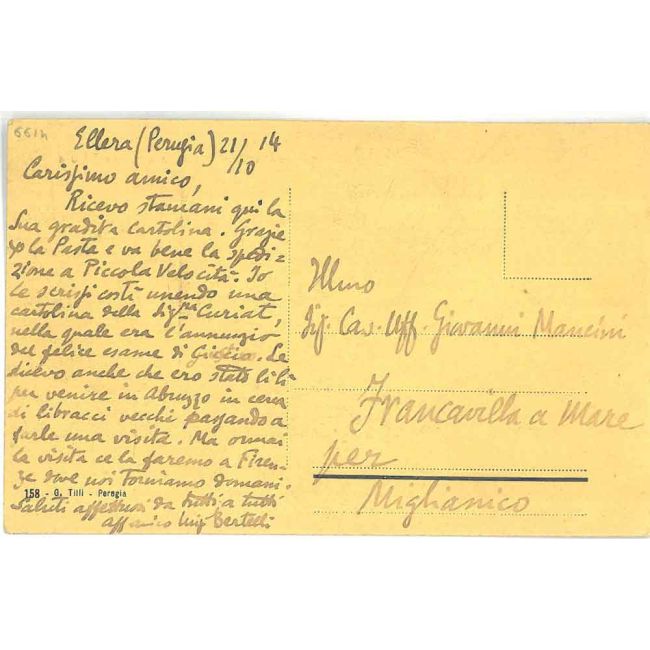 661h
Ellera (Perugia) 21/10 14
Carissimo amico,
Ricevo stamani qui la
Sua gradita cartolina. Grazie
xla Pasta e va bene la spedi=
zione a Piccola Velocità. Io
Le scrissi costì unendo una
cartolina della Sig.ra Curiat,
nella quale era l'annunzio
del felice esame di Le
dicevo anche che ero stato lì lì
per venire in Abruzzo in cerca
di libracci vecchi passando a
farle una visita. Ma ormai
la visita ce la faremo a Firen=
ze dove noi torniamo domani.
Saluti affettuosi da tutti a tutti
aff amico Luigi Bertelli
158 - G. Tilli - Perugia
Illmo
Sig. Cav. Uff. Giovanni Mancini
Francavilla a Mare
per
Miglianico